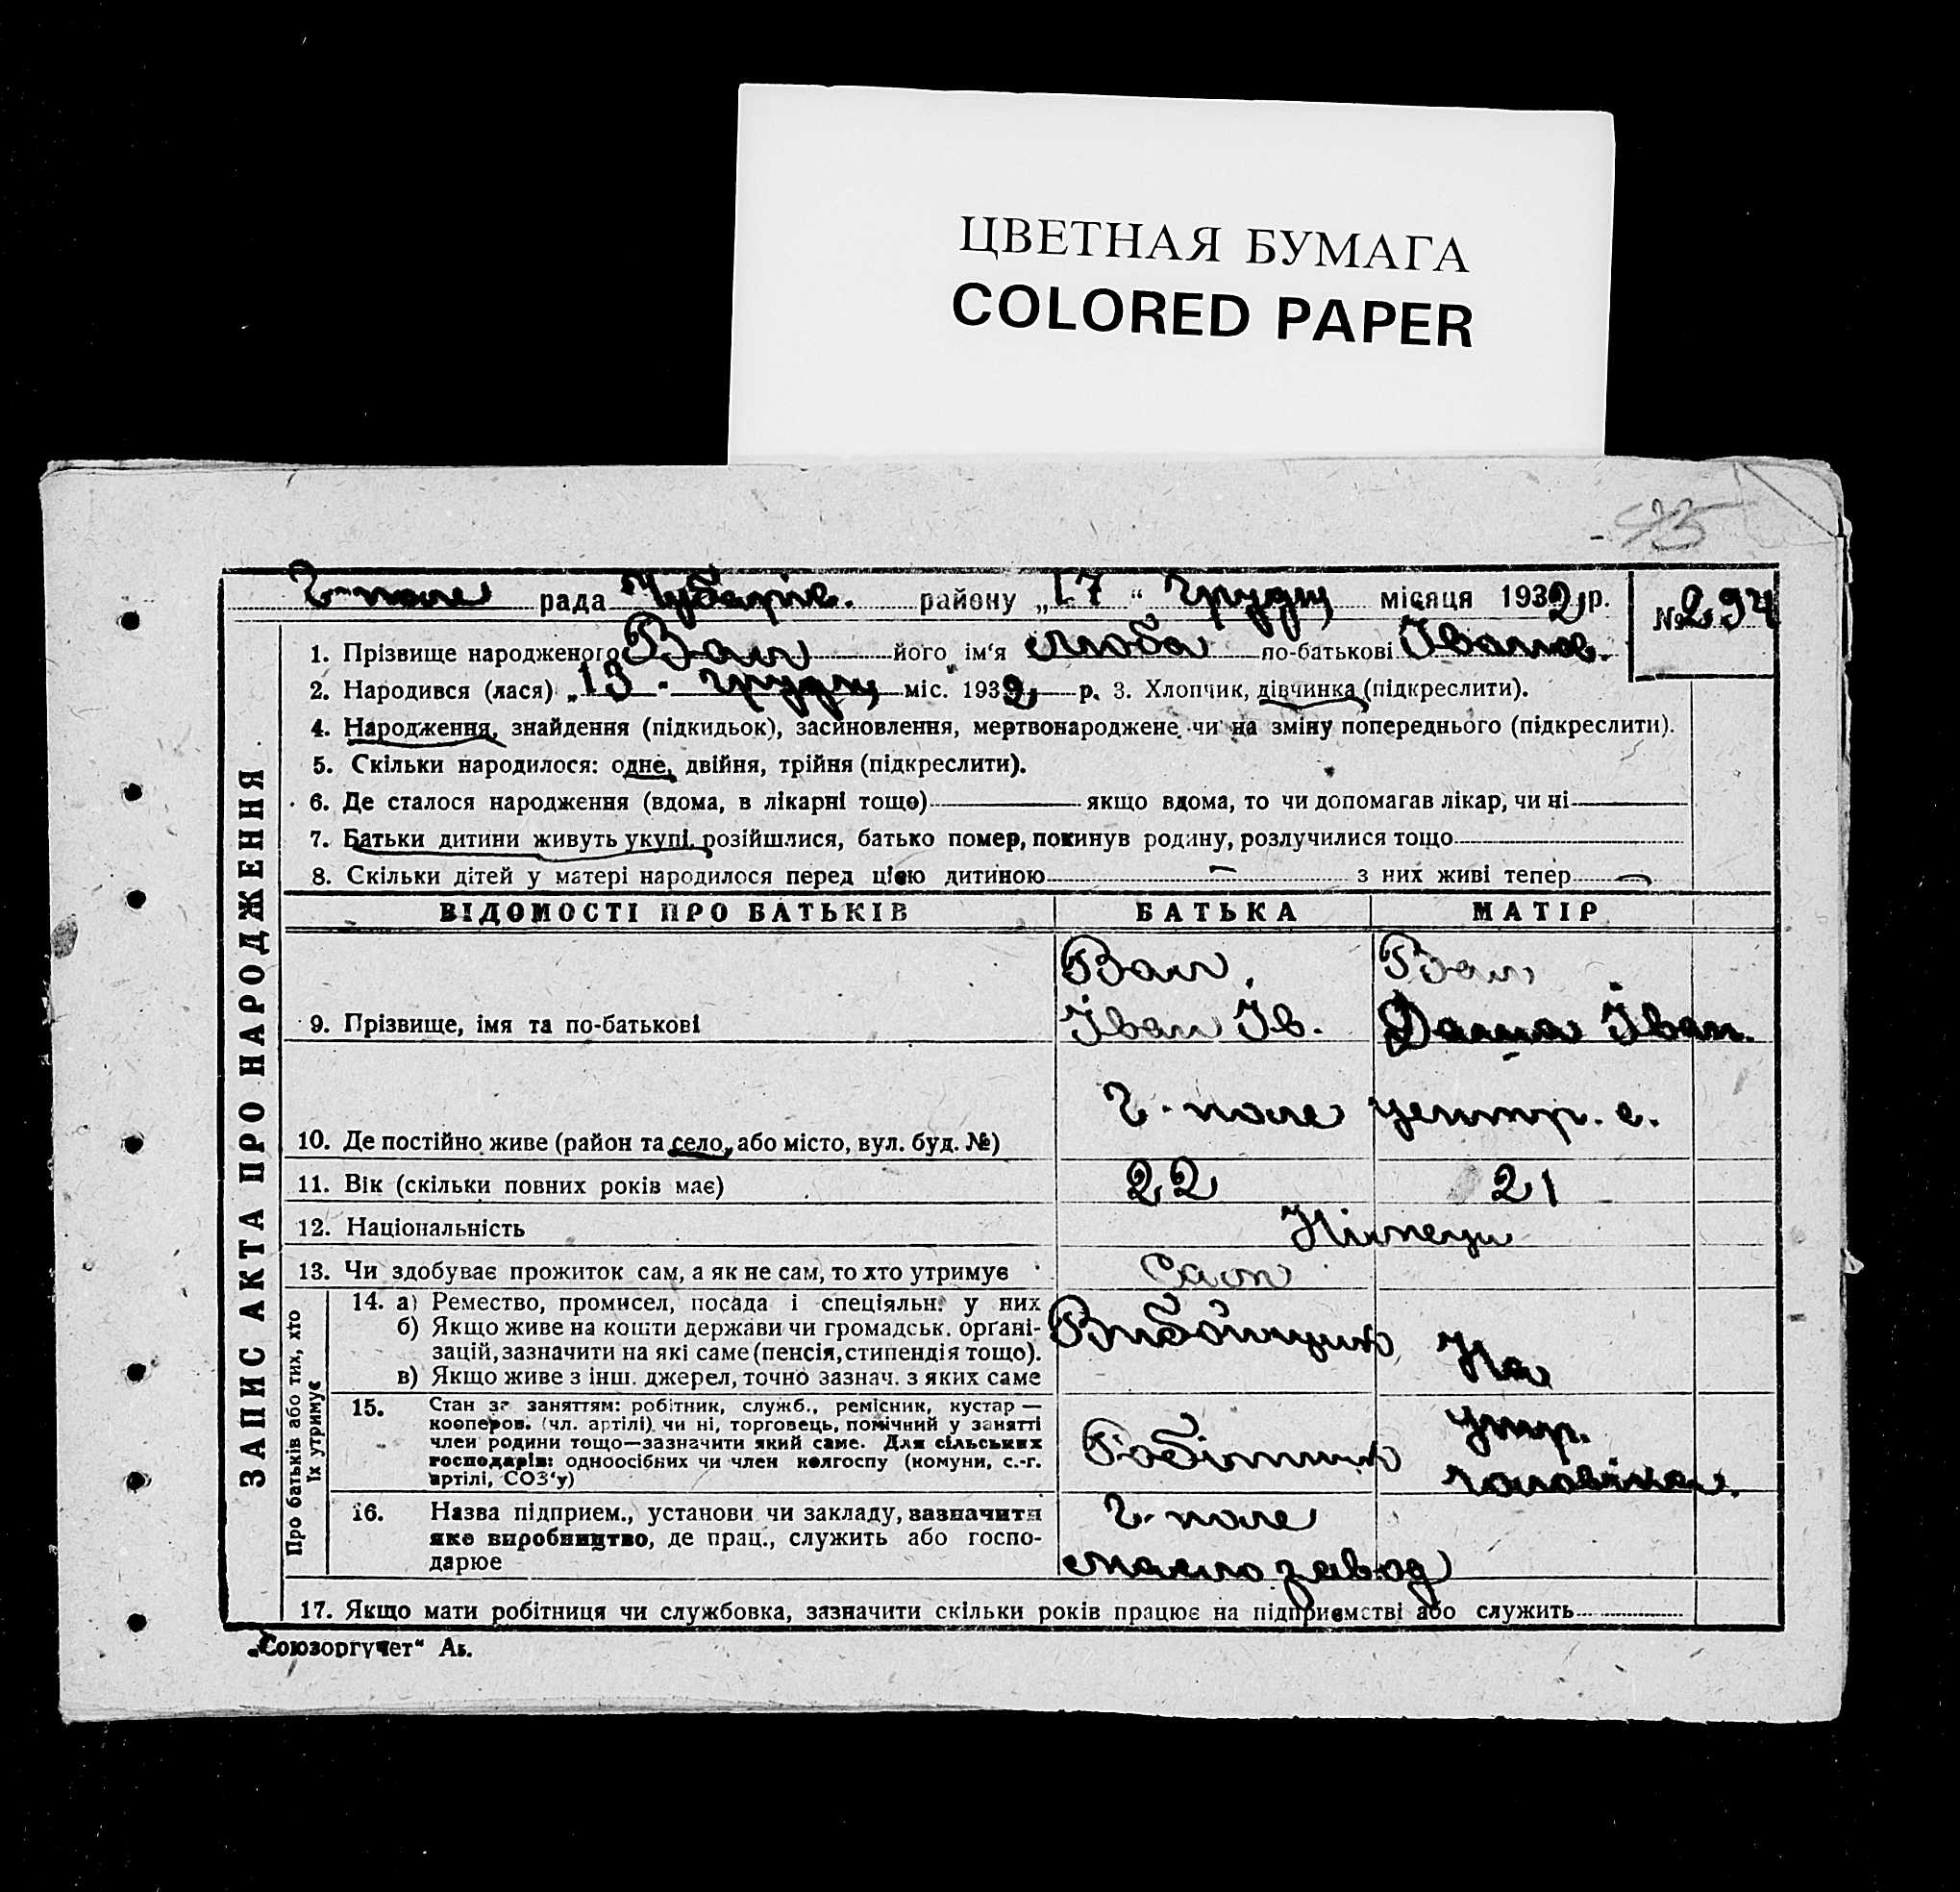 ЦВЕТНАЯ БУМАГА
COLORED PAPER
Г-поле рада Чубарів. району „17“ грудн місяця 1932 р. № 294
1. Прізвище народженого Ван його ім'я Люба по-батькові Іванов.
2. Народився (лася) „13 - грудн міс. 1932 р. 3. Хлопчик, дівчинка (підкреслити).
4. Народження, знайдення (підкидьок), засиновлення, мертвонароджене чи на зміну попереднього (підкреслити).
5. Скільки народилося: одне, двійня, трійня (підкреслити).
6. Де сталося народження (вдома, в лікарні тощо) якщо вдома, то чи допомагав лікар, чи ні
7. Батьки дитини живуть укупі, розійшлися, батько помер, покинув родину, розлучилися тощо
8. Скільки дітей у матері народилося перед цією дитиною — з них живі тепер —
ЗАПИС АКТА ПРО НАРОДЖЕННЯ
ВІДОМОСТІ ПРО БАТЬКІВ БАТЬКА МАТІР
Ван, Ван
9. Прізвище, імя та по-батькові Іван Ів. Іван.
Г-поле центр. с.
10. Де постійно живе (район та село, або місто, вул. буд. №)
11. Вік (скільки повних років має) 22 21
12. Національність Німеці
13. Чи здобуває прожиток сам, а як не сам, то хто утримує Сам
Про батьків або тих, хто їх утримує
14. а) Ремество, промисел, посада і спеціяльн. у них
б) Якщо живе на кошти держави чи громадськ. органі-
зацій, зазначити на які саме (пенсія, стипендія тощо).
в) Якщо живе з інш. джерел, точно зазнач. з яких саме
На
15. Стан за заняттям: робітник, служб., ремісник, кустар —
кооперов. (чл. артілі) чи ні, торговець, помічний у занятті
член родини тощо—зазначити який саме. Для сільських
господарів: одноосібних чи член колгоспу (комуни, с.-г.
артілі, СОЗ'у)
Робітник
утр.
чоловіка.
16. Назва підприєм., установи чи закладу, зазначити
яке виробництво, де прац., служить або госпо-
дарює
Г-поле
маслозавод
17. Якщо мати робітниця чи службовка, зазначити скільки років працює на підприємстві або служить
„Союзоргучет“